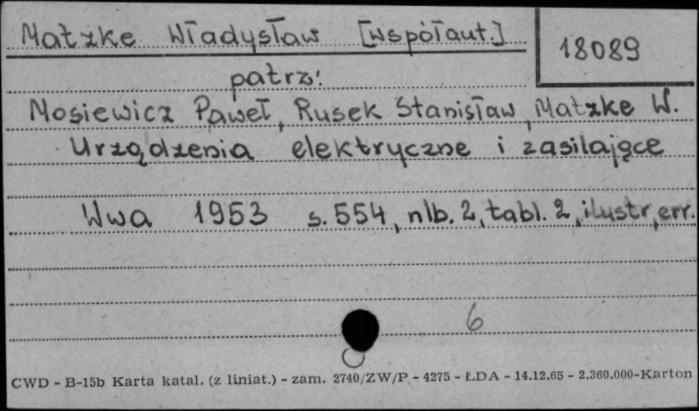 Matzke Władysław [współaut.]
18089
patrz:
Mosiewicz Paweł, Rusek Stanisław, Matzke W.
Urządzenia elektryczne i zasilające
Wwa 1953 s. 554, nlb. 2, tabl. 2, ilustr, err.
6
CWD - B-15b Karta katal. (z liniat.) - zam. 2740/ZW/P - 4275 - ŁDA - 14.12.65 - 2.360.000-Karton